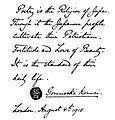 Poetry is the Religion of Japan.
Through it the Japanese people
cultivate their Patriotism.
Fortitude and Love of Beauty.
It is the standard of their
daily life.
London. August 4th